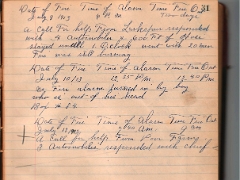 Date of Fire Time of Alarm Time Fire Out 31
July 8 1913 P.M. Two Days
A Call for help from Lockport responded
with 4 Automobiles & 600 Ft of Hose
stayed until 1 O.Clock went with 20 men
Fire was still burning
Date of Fire Time of Alarm Time Fire Out
July 10/13 12.35 P.M. 12.40 P.M.
No Fire alarm turned in by boy
who is out of his head
Box # 54
Date of Fire Time of Alarm Time Fire Out
July
A Call for help from
2 Automobiles responded with chief